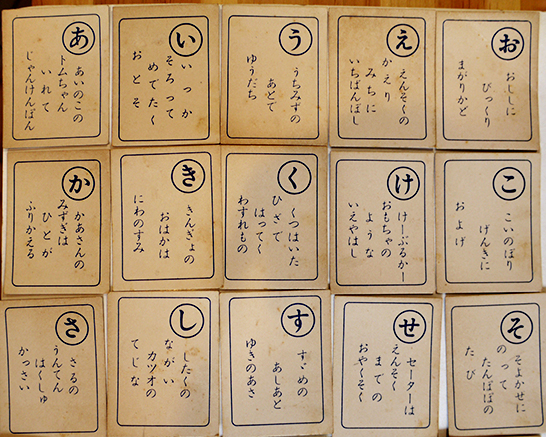 あ
あいのこの
トムちゃん
いれて
じゃんけんぽん
い
いっか
そろって
めでたく
おとそ
う
うちみずの
あとで
ゆうだち
え
えんそくの
かえり
みちに
いちばんぼし
お
おししに
びっくり
まがりかど
か
かあさんの
みずぎは
ひとが
ふりかえる
き
きんぎょの
おはかは
にわのすみ
く
くつはいた
ひざで
はってく
わすれもの
け
けーぶるかー
おもちゃの
ような
いえやはし
こ
こいのぼり
げんきに
およげ
さ
さるの
うんてん
はくしゅ
かっさい
し
したくの
ながい
カツオの
てじな
す
すゞめの
あしあと
ゆきのあさ
せ
セーターは
えんそく
までの
おやくそく
そ
そよかせに
のって
たんぽぽの
たび